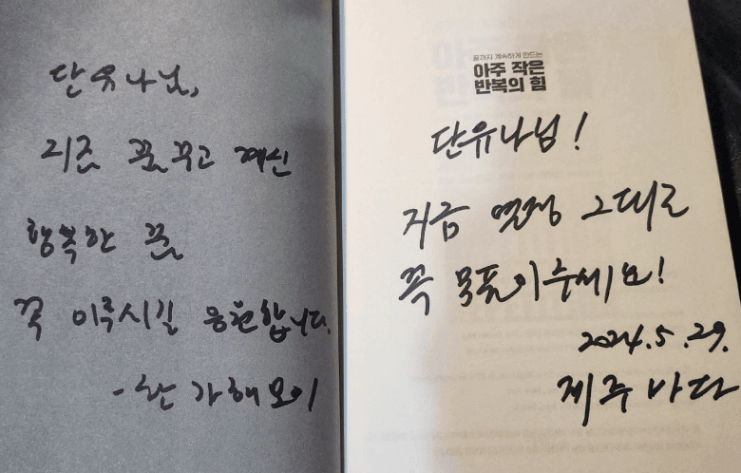 단유나님,
지금 꿈꾸고 계신
행복한 꿈
꼭 이루시길 응원합니다.
끝까지 계속하게 만드는
아주 작은
반복의 힘
단유나님!
지금 열정 그대로
꼭 목표 이루세요!
2024.5.29.
제주바다